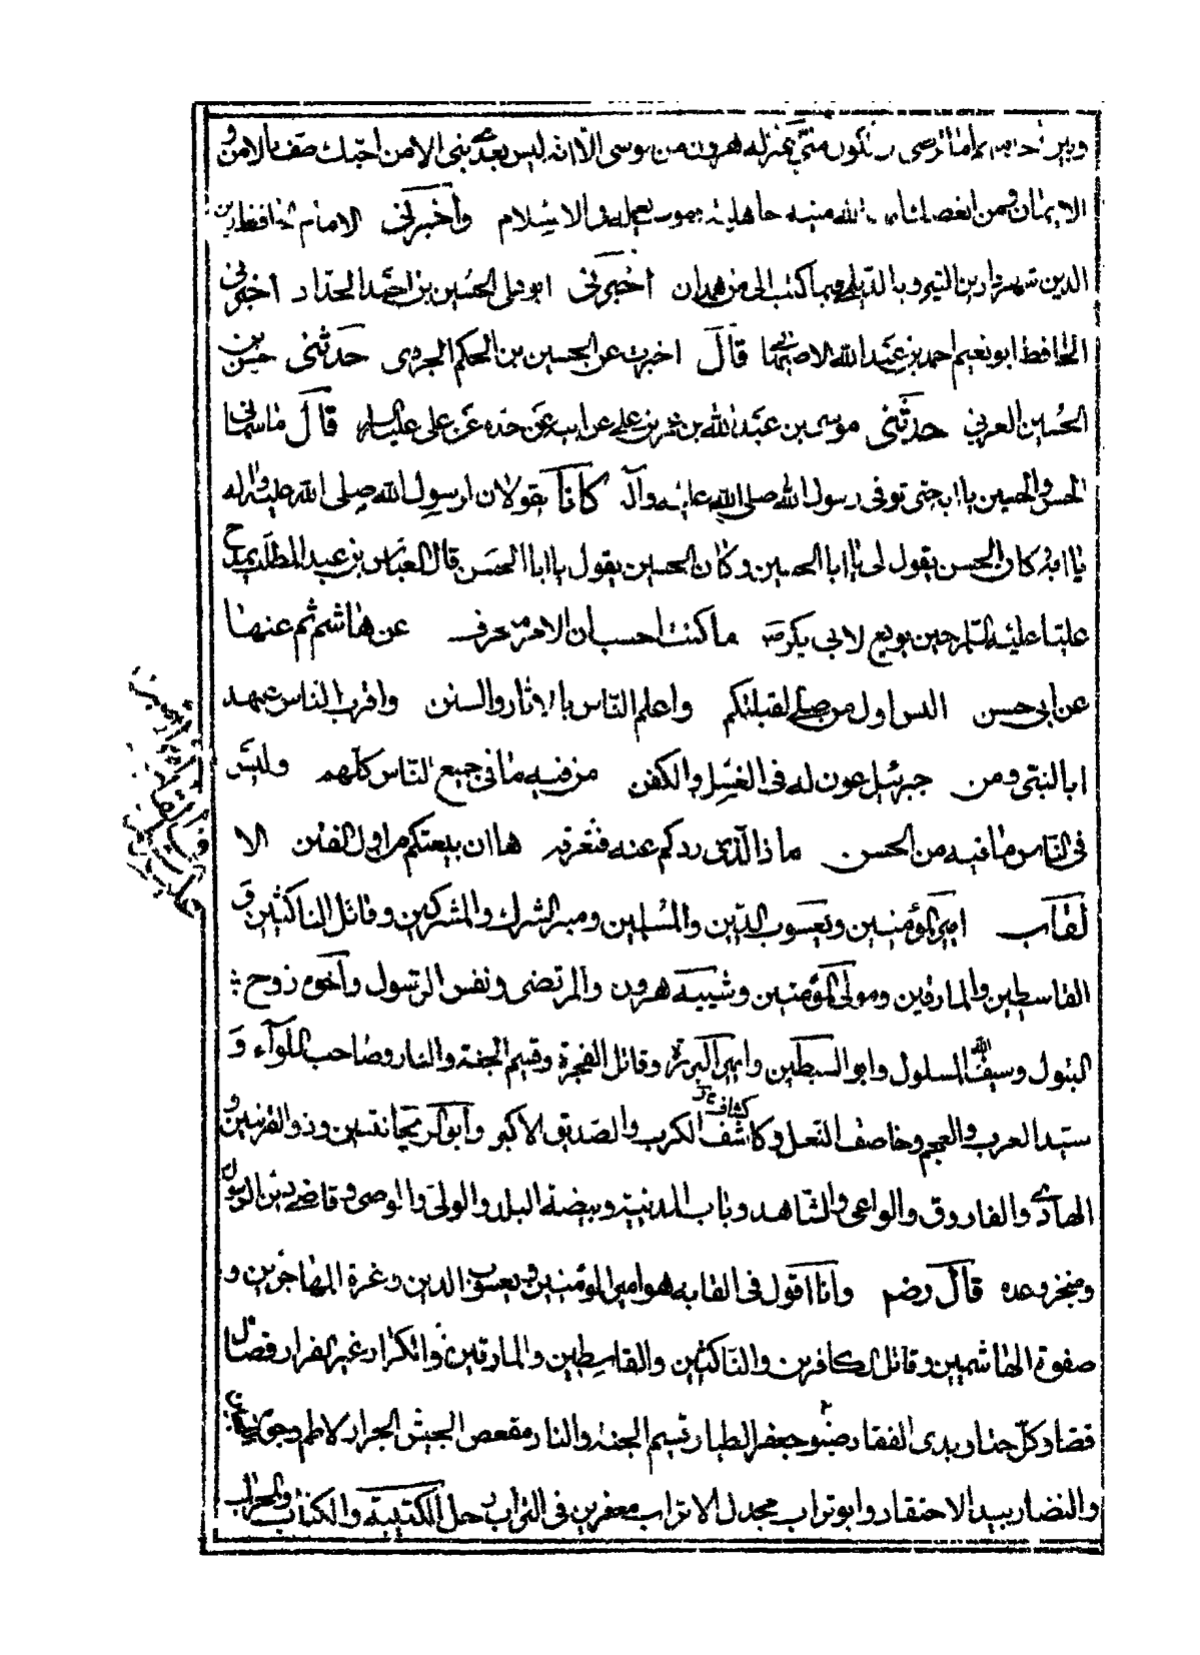 وبين احد اما ترضى ان تكون منى بمنزله هرون من موسى الا انه ليس بعدى نبى الا من احبك حف بالامن و
الايمان ومن ابغضك اماته الله ميتة جاهلية وحوسب بعمله فى الاسلام واخبرنى الامام الحافظ زين
الدين شهردار بن شيرويه الديلمى فيما كتب الى من همدان اخبرنى ابو على الحسين بن احمد الحداد اخبرنى
الحافظ ابو نعيم احمد بن عبد الله الاصبهانى قال اخبرت عن الحسين بن الحكم الجبرى حدثنى حسن بن
الحسين العرنى حدثنى موسى بن عبد الله بن عن ابيه عن جده عن على عليه السلار قال ما سمانى
الحسن والحسين يا ابه حتى توفى رسول الله صلى الله عليه وآله كانا يقولان لرسول الله صلى الله عليه واله
يا ابه كان الحسن يقول لى يا ابا الحسين وكان الحسين يقول يا ابا الحسن قال العباس بن عبد المطلب يمدح
عليا عليه السلم حين بويع لابى بكر ما كنت احسب ان الامر منحرف عن هاشم ثم عنها
عن ابى حسن اليس اول من صلى لقبلتكم واعلم الناس بالاثار والسنن واقرب الناس عهد
ابا النبى ومن جبرئيل عون له فى الغسل والكفن من فيه ما فى جميع الناس كلهم وليس
فى الناس ما فيه من الحسن ما ذا الذى ردكم عنه فنعرفه ها ان بيعتكم من اول الفتن الا
لقاب امير المؤمنين ويعسوب الدين والمسلمين ومبير الشرك والمشركين وقاتل الناكثين و
القاسطين والمارقين ومولى المؤمنين وشبيه هرون والمرتضى ونفس الرسول واخوه زوج
البتول وسيف الله المسلول وابو السبطين وامير البررة وقاتل الفجرة وقسيم الجنة والنار وصاحب اللوآء و
سيد العرب والعجم وخاصف النعل وكاشف الكرب والصديق الاكبر وابو الريحانتين وذو القرنين و
الهادى والفاروق والواعى والشاهد وباب المدينة وبيضة البلد والولى والوصى وقاضى دين الرسول
ومنجز وعده قال رضه وانا اقول فى القابه هو امير المؤمنين ويعسوب الدين وغرة المهاجرين و
صفوة الهاشميين وقاتل الكافرين والناكثين والقاسطين والمارقين والكرار غير الفرار فصال
فقار كل ختار بذى الفقار صنو جعفر الطيار قسيم الجنة والنار مقعص الجيش الجرار
والنضار بيد الاحتقار وابو تراب مجدل الاتراب معفرين فى التراب رجل الكتيبة والكتاب والمحراب